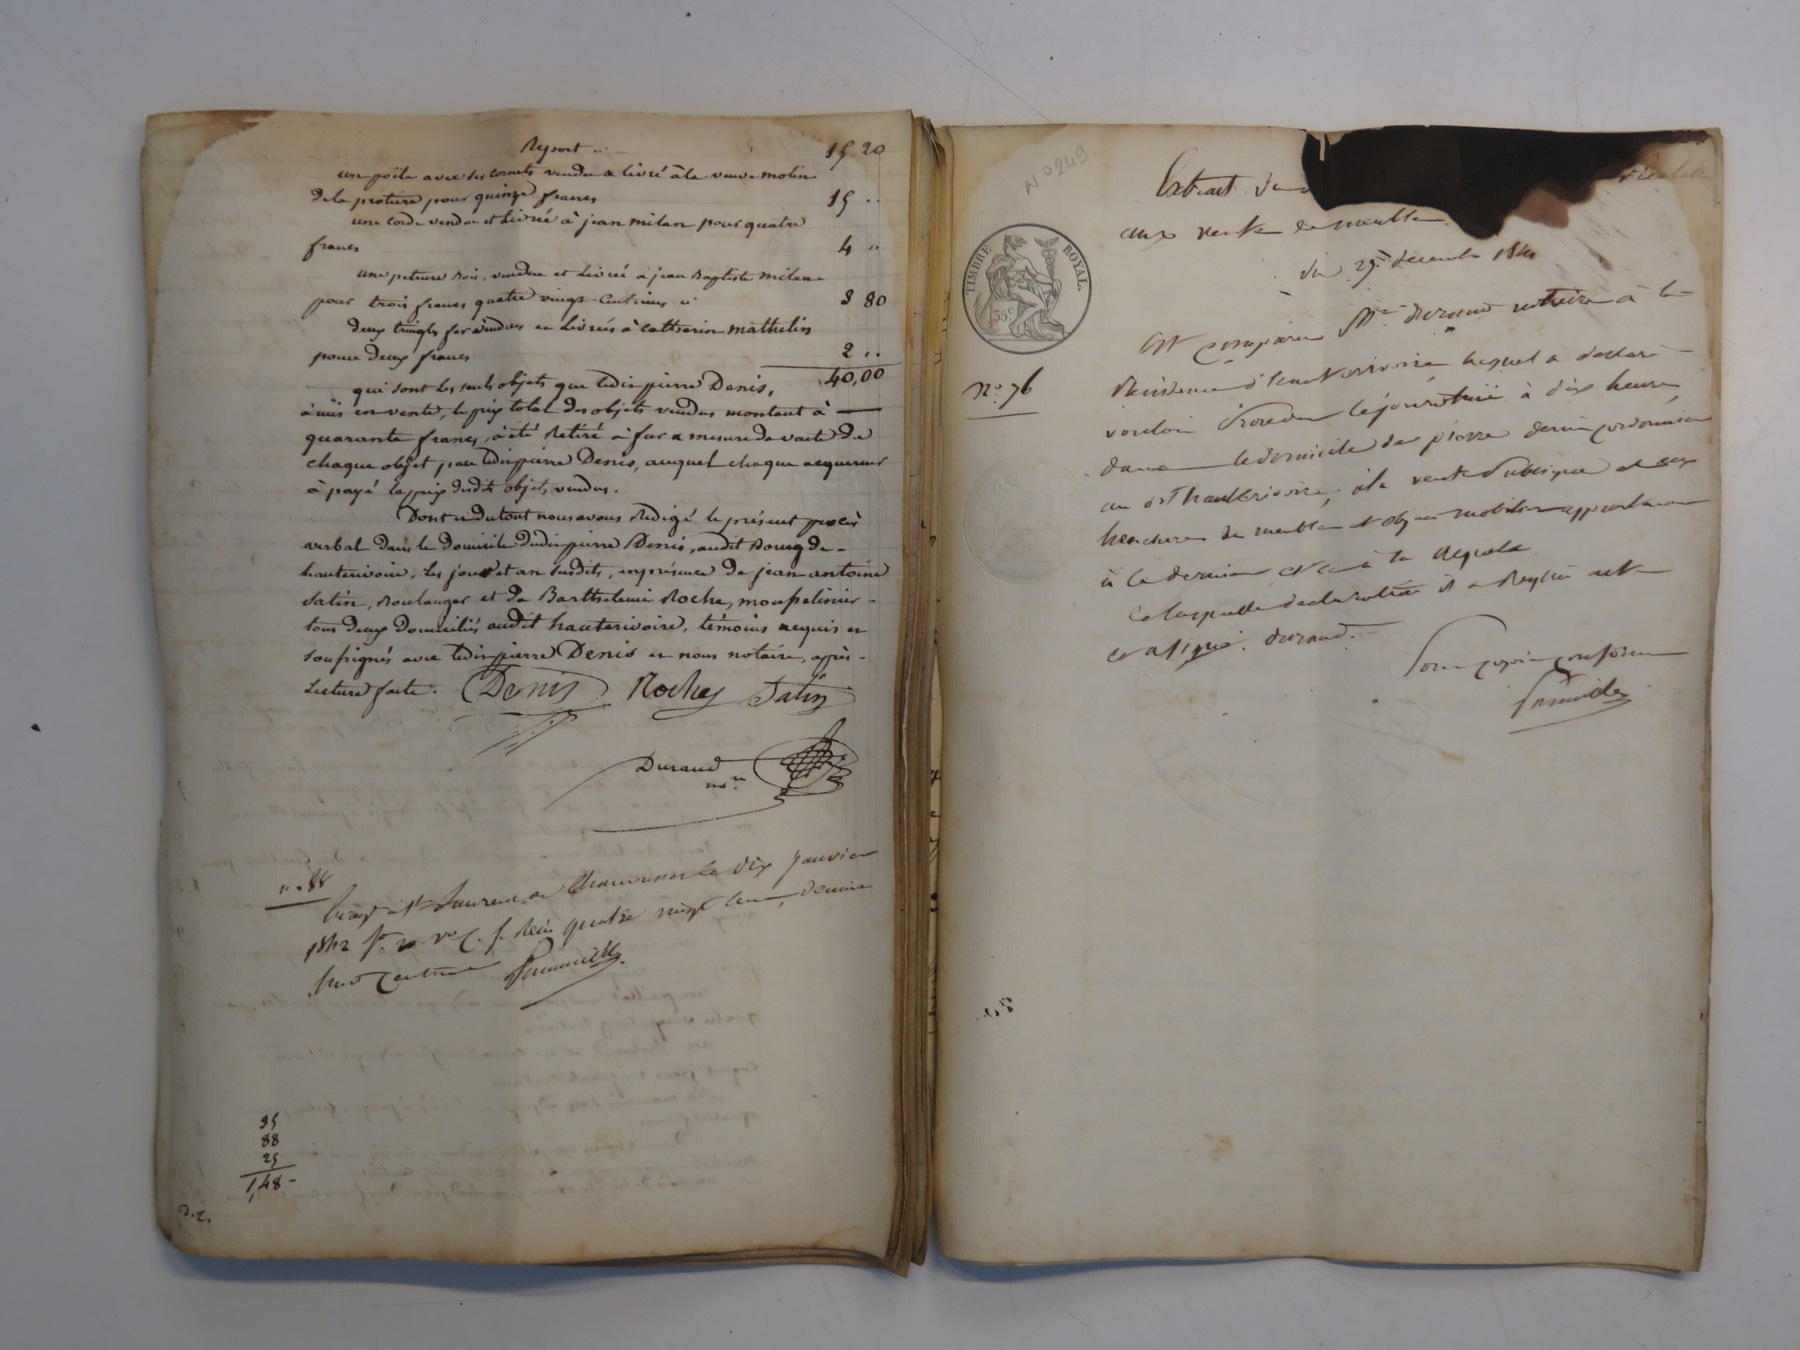 Report ... 15.20
un poële avec ses cornets vendu & livré à la veuve molin
de la protière pour quinze francs 15 ..
une corde vendue et Livrée à jean milan pour quatre
francs 4 ..
une petrière Bois, vendue et Livrée à jean Baptiste milan
pour trois francs quatre vingt Centimes 3 80
deux tringles fer vendues et Livrées à Catherin mathelin
pour deux francs 2 ..
40,00
qui sont les seuls objets que ledit pierre Denis,
à mis en vente, le prix total des objets vendus montant à
quarante francs, à été Retiré à fur & mesure de vente de
chaque objet par ledit pierre Denis, auquel chaque acquereur
à payé le prix desdits objets vendus.
Dont et du tout nous avons Rédigé le présent procès
verbal dans le domicile dudit pierre Denis, audit Bourg de
hauterivoire, les jour et an susdits, en présence de jean antoine
Satin, Boulanger et de Barthelemi Roche,
tous deux Domiciliés audit hauterivoire, témoins requis et
soussignés avec ledit pierre Denis et nous notaire, après
Lecture faite. Denis Roche Satin
Durand
nre
no 88
Enregé à St Laurent de Chamousset le dix janvier
1842 fo. 20 vo C. f. Reçu quatre vingt huit centimes, décime
huit Centimes
35
88
25
1,48
No 249
Extrait du
aux vente de meubles
TIMBRE ROYAL.
35c
du 29 décembre 1841
No. 76
Est comparu Me durand notaire à la
Résidence d'hauterivoire lequel a déclaré
vouloir procéder le jour à dix heures
dans le domicile de pierre denis cordonnier
au dt hauterivoire, à la vente publique et aux
henchères de meubles et objets mobiliers appartenant
à ce dernier et à la Requete
de laquelle declaration il a Requis acte
et a signé. durand.
Pour copie conforme